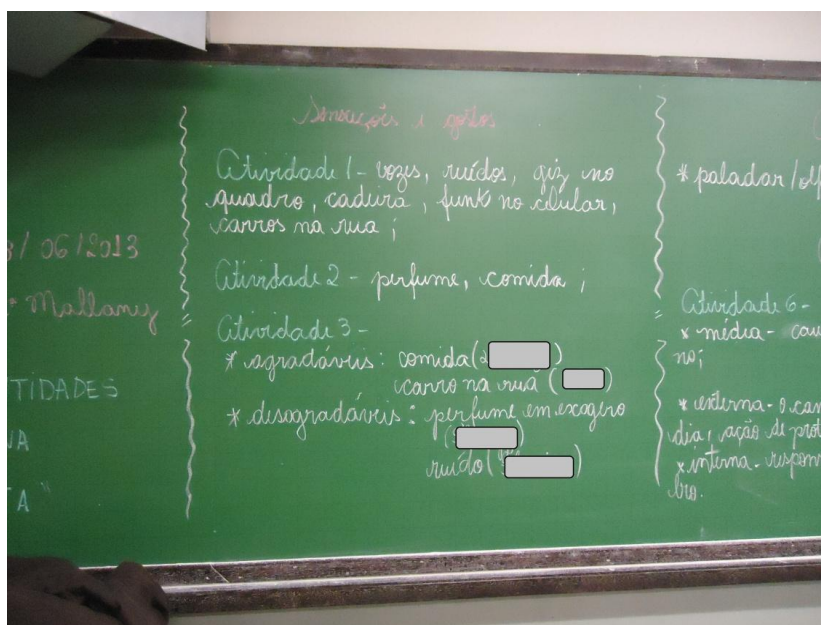 3/06/2013
Mallany
TIDADES
VA
TA"
Sensações e gostos
Atividade 1 - vozes, ruídos, giz no
quadro, cadeira, funk no celular,
carros na rua;
Atividade 2 - perfume, comida;
Atividade 3 -
* agradáveis: comida( )
carro na rua ( )
* desagradáveis: perfume em exagero
( )
ruído( )
* paladar/olf
Atividade 6 -
* média -
no;
* externa - o can
dia, ação de prot
* interna - respon
bro.